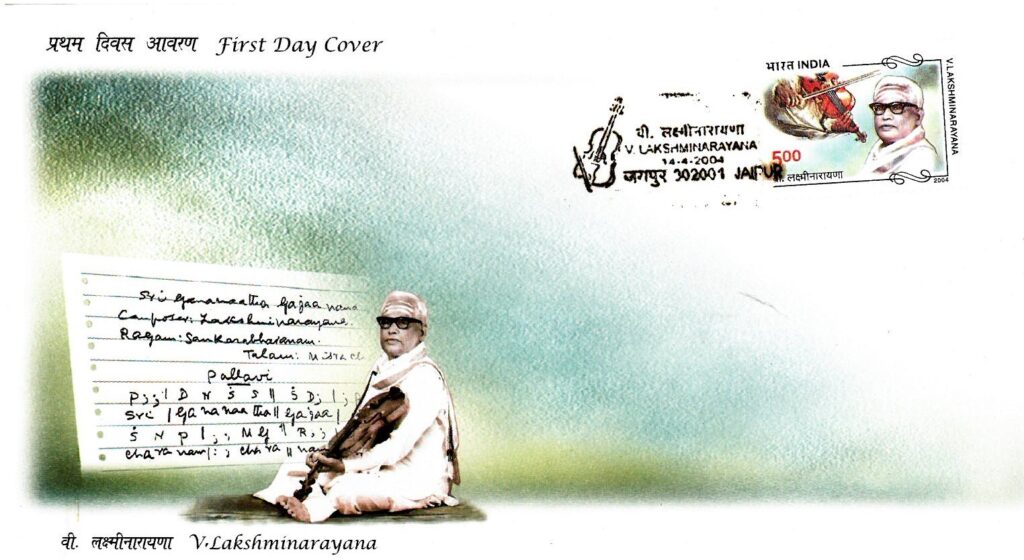 प्रथम दिवस आवरण First Day Cover
भारत INDIA
V.LAKSHMINARAYANA
500
वी. लक्ष्मीनारायणा
2004
वी. लक्ष्मीनारायणा
V. LAKSHMINARAYANA
14-4-2004
302001 JAIPUR
Sri Gananaatha Gajaa nana
Composer: Lakshminarayana.
Ragam: Sankarabharanam.
Talam: Misra ch
Pallavi
P ; ; | D N Ṡ S || Ṡ D ; | ; P
Sri | Ga na naa tha || Gajaa |
Ṡ N P | ; , M G || R , ; |
charanam | : ; chara || nam
वी. लक्ष्मीनारायणा V.Lakshminarayana